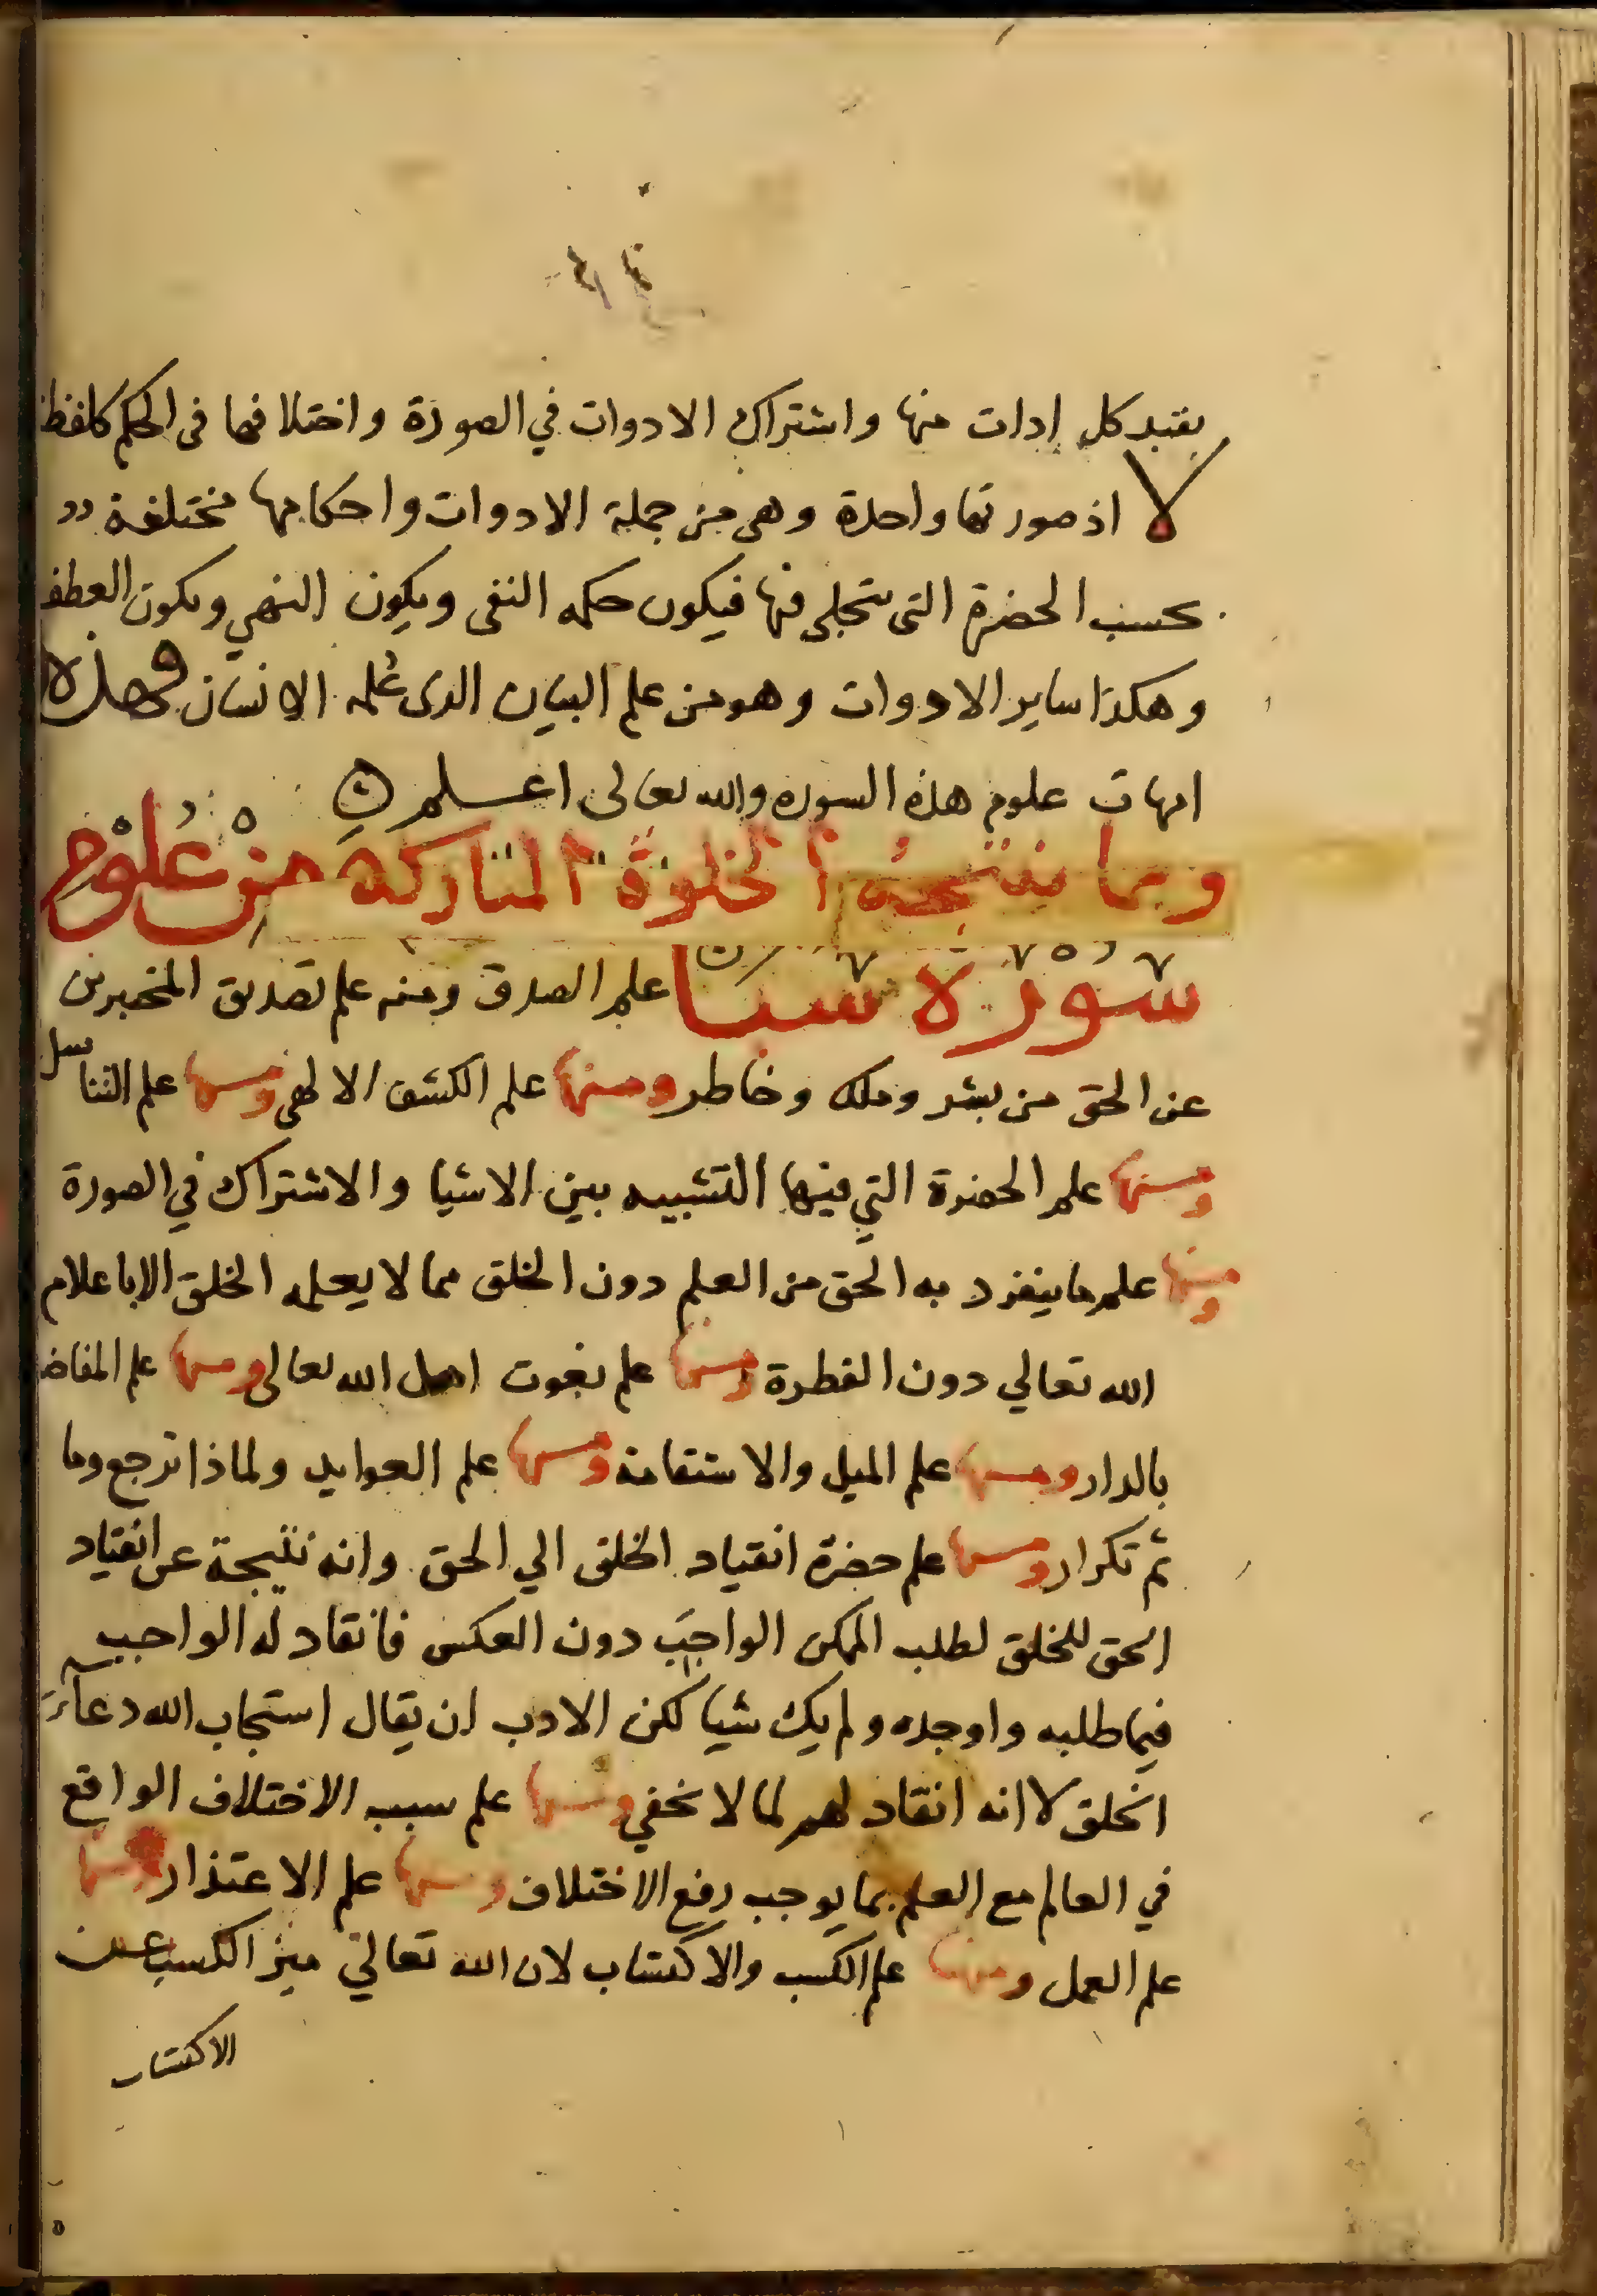 يقيد كل ادات منها واشتراك الادوات في الصورة واختلافها في الحكم كلفظ
لا اذ صورتها واحدة وهي من جملة الادوات واحكامها مختلفة
بحسب الحضرة التي تتجلى فيها فيكون حكمه النفى ويكون النهي ويكون العطف
وهكذا ساير الادوات وهو من علم البيان الدى عُلمه الانسان فهذه
امهات علوم هذه السوره والله تعالى اعلم
ومما تنتجه الخلوة المباركه من عُلوْم
سُوْرَة سَبَا علم الصدق ومنه علم تصديق المخبرين
عن الحق من بشر وملك وخاطر ومنها علم الكشف الالهى ومنها علم التناسل
ومنها علم الحضرة التي فيها التشبيه بين الاشيا والاشتراك في الصورة
ومنها علم ما ينفرد به الحق من العلم دون الخلق مما لا يعلمه الخلق الا باعلام
الله تعالي دون الفطرة ومنها علم نعوت اهل الله تعالى ومنها علم المفاضـ
بالدار ومنها علم الميل والاستقامة ومنها علم العوايد ولماذا ترجع وما
ثم تكرار ومنها علم حضرة انقياد الخلق الي الحق وانه نتيجة عن انقياد
الحق للخلق لطلب الممكن الواجبَ دون العكس فانقاد له الواجب
فيما طلبه واوجده ولم يك شيا لكن الادب ان يقال استجاب الله دعاءَ
الخلق لا انه انقاد لهم لما لا يخفي ومنها علم سبب الاختلاف الواقع
في العالم مع العلم بما يوجب رفع الاختلاف ومنها علم الاعتذار ومنها
علم العمل ومنها علم الكسب والاكتساب لان الله تعالي ميز الكسب عن
الاكتساب